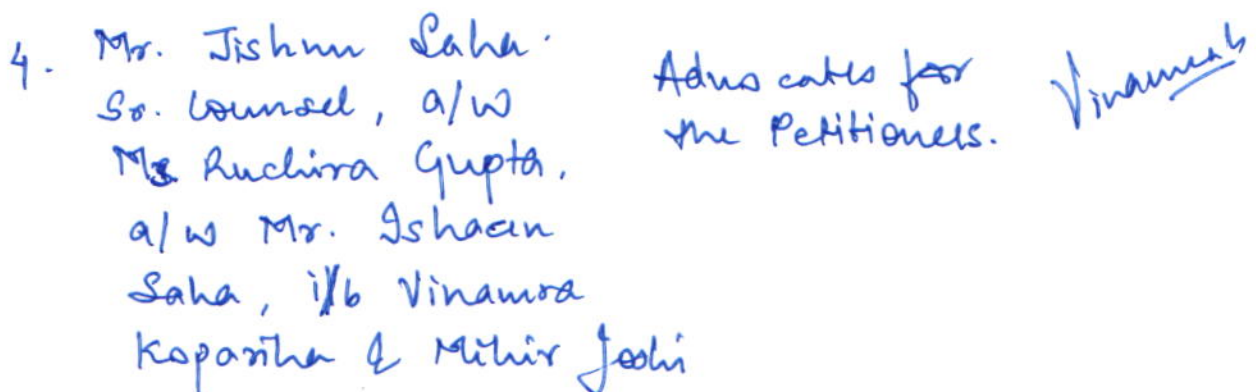 4. Mr. Jishnu Saha.
Sr. Counsel, a/w
Ms Ruchira Gupta,
a/w Mr. Ishaan
Saha, i/b Vinamra
Kopariha & Mihir Joshi
Advocates for
the Petitioners.
Vinamrah